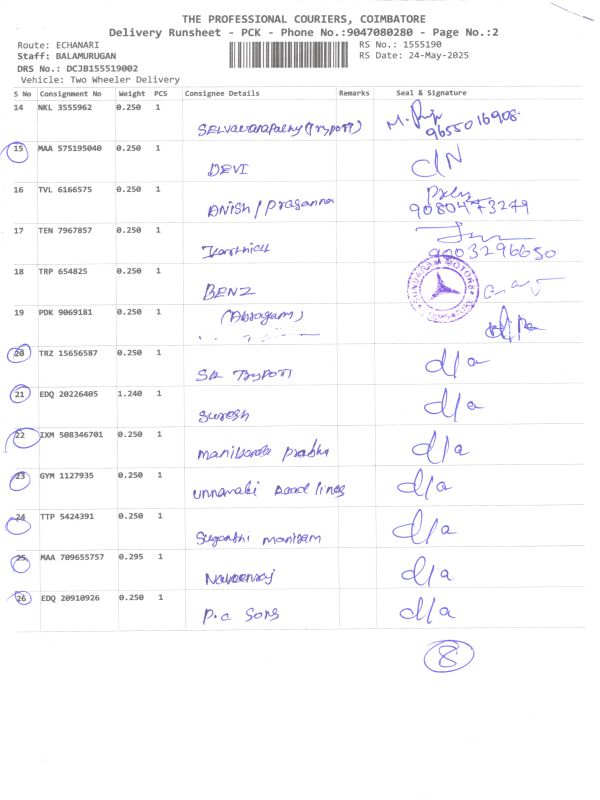 THE PROFESSIONAL COURIERS, COIMBATORE
Delivery Runsheet - PCK - Phone No.:9047080280 - Page No.:2
Route: ECHANARI RS No.: 1555190
Staff: BALAMURUGAN RS Date: 24-May-2025
DRS No.: DCJB155519002
Vehicle: Two Wheeler Delivery
S No Consignment No Weight PCS Consignee Details Remarks Seal & Signature
14 NKL 3555962 0.250 1
9655016908
15 MAA 575195040 0.250 1
DEVI
16 TVL 6166575 0.250 1
ANish / Prasanna 9080473279
17 TEN 7967857 0.250 1
9003296650
18 TRP 654825 0.250 1
BENZ
SUNDARAM MOTORS
19 PDK 9069181 0.250 1
20 TRZ 15656587 0.250 1
d/a
21 EDQ 20226405 1.240 1
Suresh d/a
22 IXM 508346701 0.250 1
d/a
23 GYM 1127935 0.250 1
d/a
24 TTP 5424391 0.250 1
d/a
25 MAA 709655757 0.295 1
Naveenraj d/a
26 EDQ 20910926 0.250 1
P.C Sons d/a
8